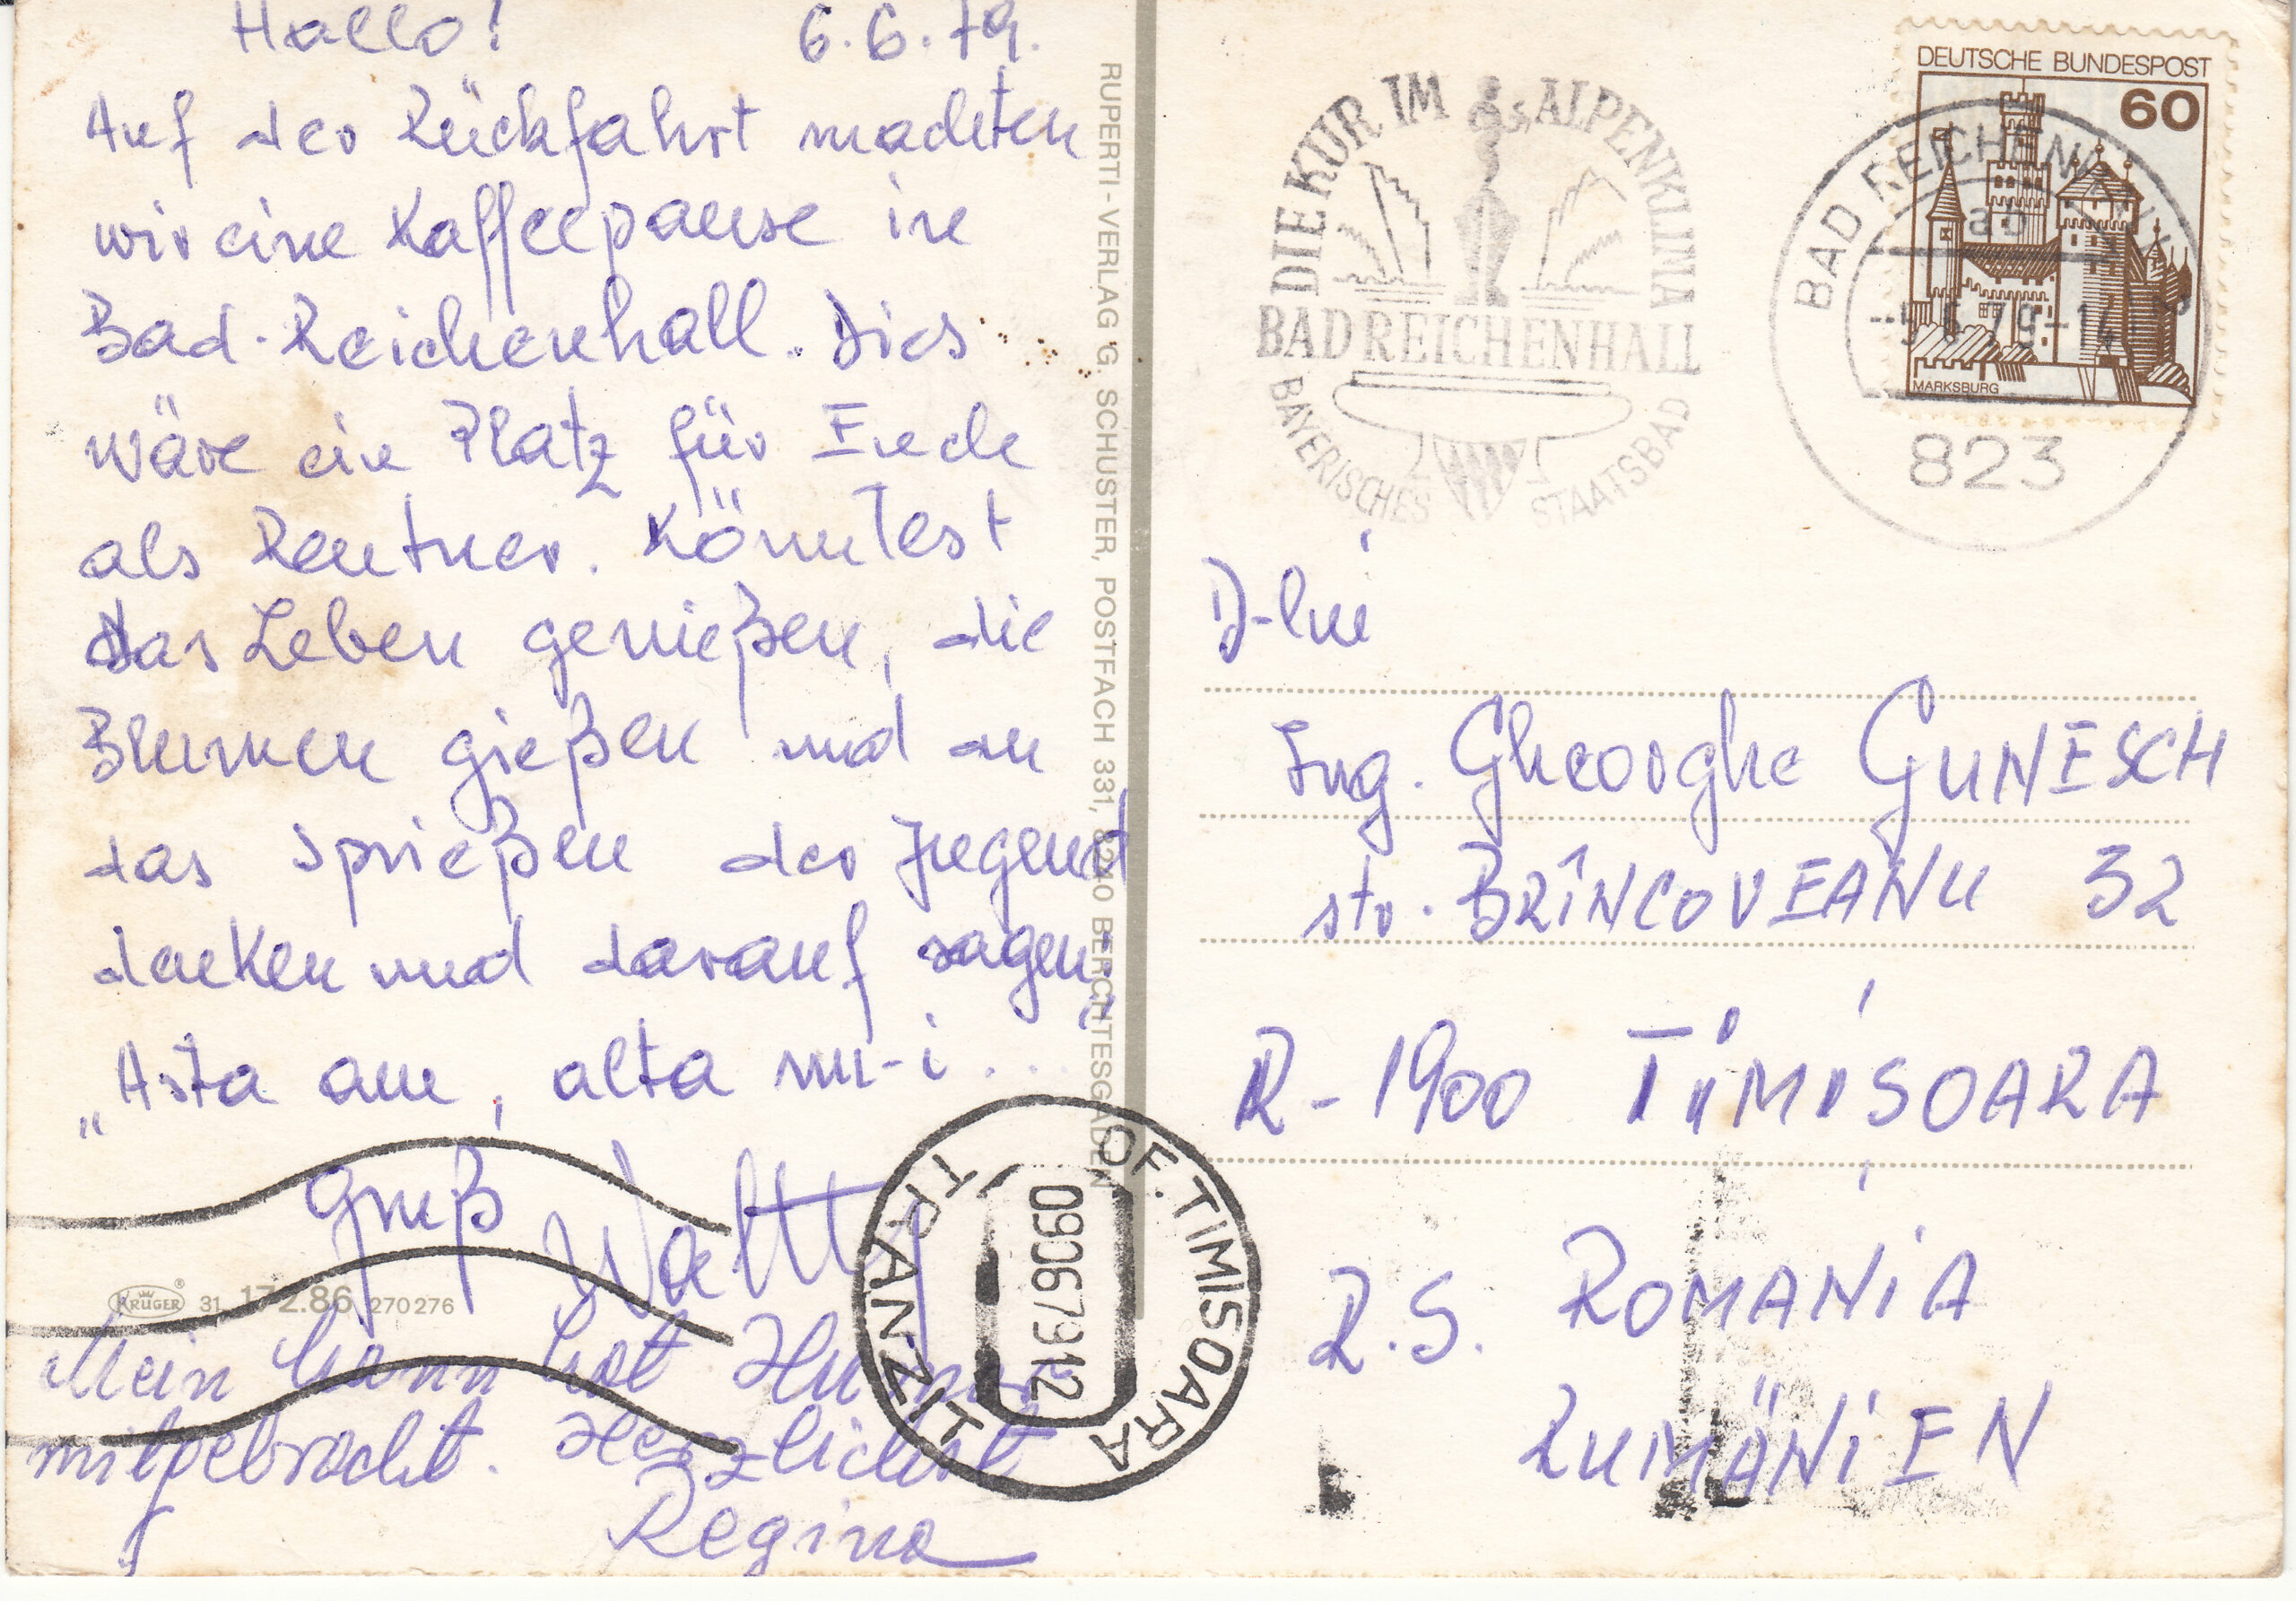 Hallo! 6.6.79.
Auf der Rückfahrt machten
wir eine Kaffeepause in
Bad-Reichenhall. Dies
wäre ein Platz für Euch
als Rentner. Könntest
das Leben genießen, die
Blumen gießen und an
das Sprießen der Jugend
denken und darauf sagen:
„Asta am, alta nu-i...
Gruß
Mein Mann hat Humor
mitgebracht. Herzlichst
Regina
RUPERTI-VERLAG G. SCHUSTER, POSTFACH 331, 8240 BERCHTESGADEN
KRÜGER® 31 172.86 270276
DIE KUR IM ALPENKLIMA
BAD REICHENHALL
BAYERISCHES STAATSBAD
DEUTSCHE BUNDESPOST
60
MARKSBURG
BAD REICHENHALL
823
D-lui
Ing. Gheorghe GUNESCH
str. BRÎNCOVEANU 32
R-1900 TIMISOARA
R.S. ROMANIA
RUMÄNIEN
OF. TIMISOARA
TRANZIT
09067912